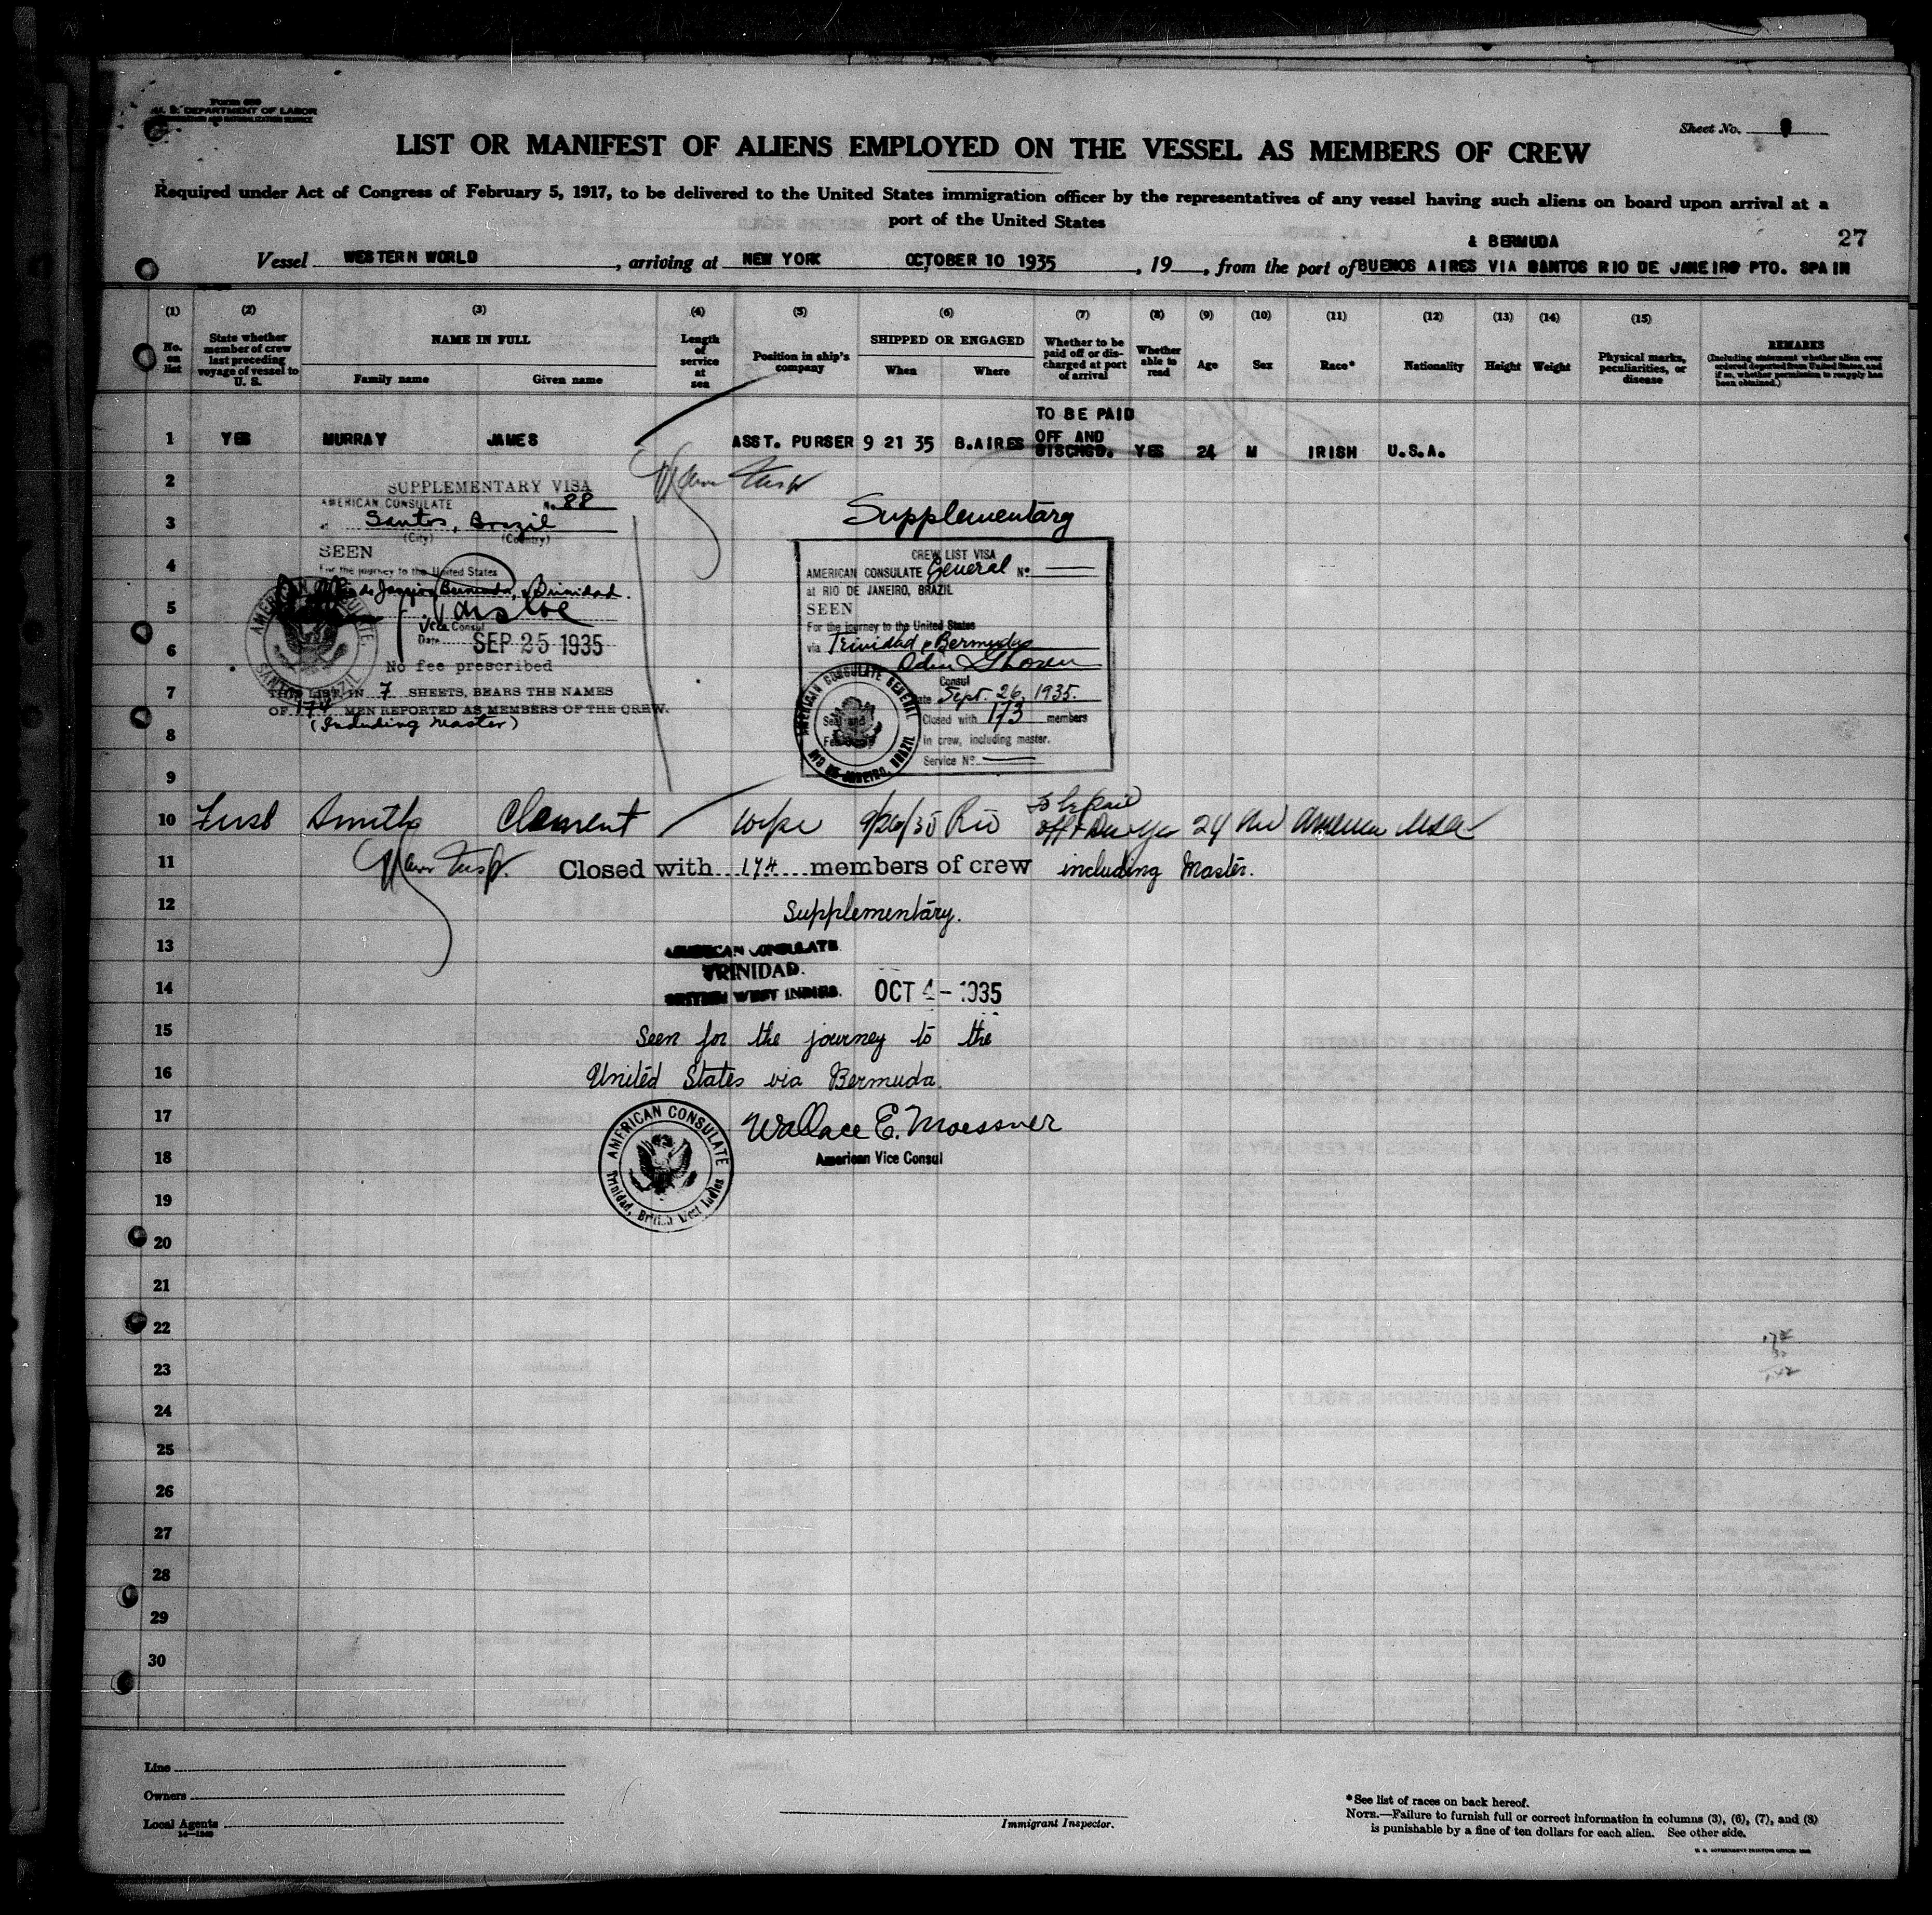 Form 689
U. S. DEPARTMENT OF LABOR
IMMIGRATION AND NATURALIZATION SERVICE
Sheet No.
LIST OR MANIFEST OF ALIENS EMPLOYED ON THE VESSEL AS MEMBERS OF CREW
Required under Act of Congress of February 5, 1917, to be delivered to the United States immigration officer by the representatives of any vessel having such aliens on board upon arrival at a
port of the United States
& BERMUDA 27
Vessel WESTERN WORLD, arriving at NEW YORK OCTOBER 10 1935, 19, from the port of BUENOS AIRES VIA SANTOS RIO DE JANEIRO PTO. SPAIN
(1) (2) (3) (4) (5) (6) (7) (8) (9) (10) (11) (12) (13) (14) (15)
No. on list
State whether member of crew last preceding voyage of vessel to U. S.
NAME IN FULL
Family name Given name
Length of service at sea
Position in ship's company
SHIPPED OR ENGAGED
When Where
Whether to be paid off or discharged at port of arrival
Whether able to read
Age
Sex
Race*
Nationality
Height
Weight
Physical marks, peculiarities, or disease
REMARKS
(Including statement whether alien ever ordered deported from United States, and if so, whether permission to reapply has been obtained.)
TO BE PAID
1 YES MURRAY JAMES ASST. PURSER 9 21 35 B.AIRES OFF AND DISCHGD. YES 24 M IRISH U.S.A.
2
SUPPLEMENTARY VISA
AMERICAN CONSULATE No. 88
3
at Santos, Brazil
(City) (Country)
SEEN
4
For the journey to the United States
Rio de Janeiro, Bermuda, & Trinidad.
5
Vice Consul
Date SEP 25 1935
6
No fee prescribed
7
THIS LIST, IN 7 SHEETS, BEARS THE NAMES
OF 174 MEN REPORTED AS MEMBERS OF THE CREW.
(Including Master)
8
AMERICAN CONSULATE
SANTOS, BRAZIL
Supplementary
CREW LIST VISA
AMERICAN CONSULATE General No
at RIO DE JANEIRO, BRAZIL
SEEN
For the journey to the United States
via Trinidad & Bermuda
Consul
Date Sept. 26, 1935.
Closed with 173 members
in crew, including master.
Service No
AMERICAN CONSULATE GENERAL
RIO DE JANEIRO, BRAZIL
9
10 First Smith Clement 9/26/35 Rio To be paid off & 24 M USA
11 Closed with 174 members of crew including Master.
12 Supplementary.
13 AMERICAN CONSULATE
TRINIDAD.
14 BRITISH WEST INDIES. OCT 4 - 1935
15 Seen for the journey to the
16 United States via Bermuda.
17 Wallace E. Moessner
18 American Vice Consul
AMERICAN CONSULATE
Trinidad, British West Indies
19
20
21
22
23
24
25
26
27
28
29
30
Line
Owners
Local Agents
14—1240
Immigrant Inspector.
*See list of races on back hereof.
NOTE.—Failure to furnish full or correct information in columns (3), (6), (7), and (8)
is punishable by a fine of ten dollars for each alien. See other side.